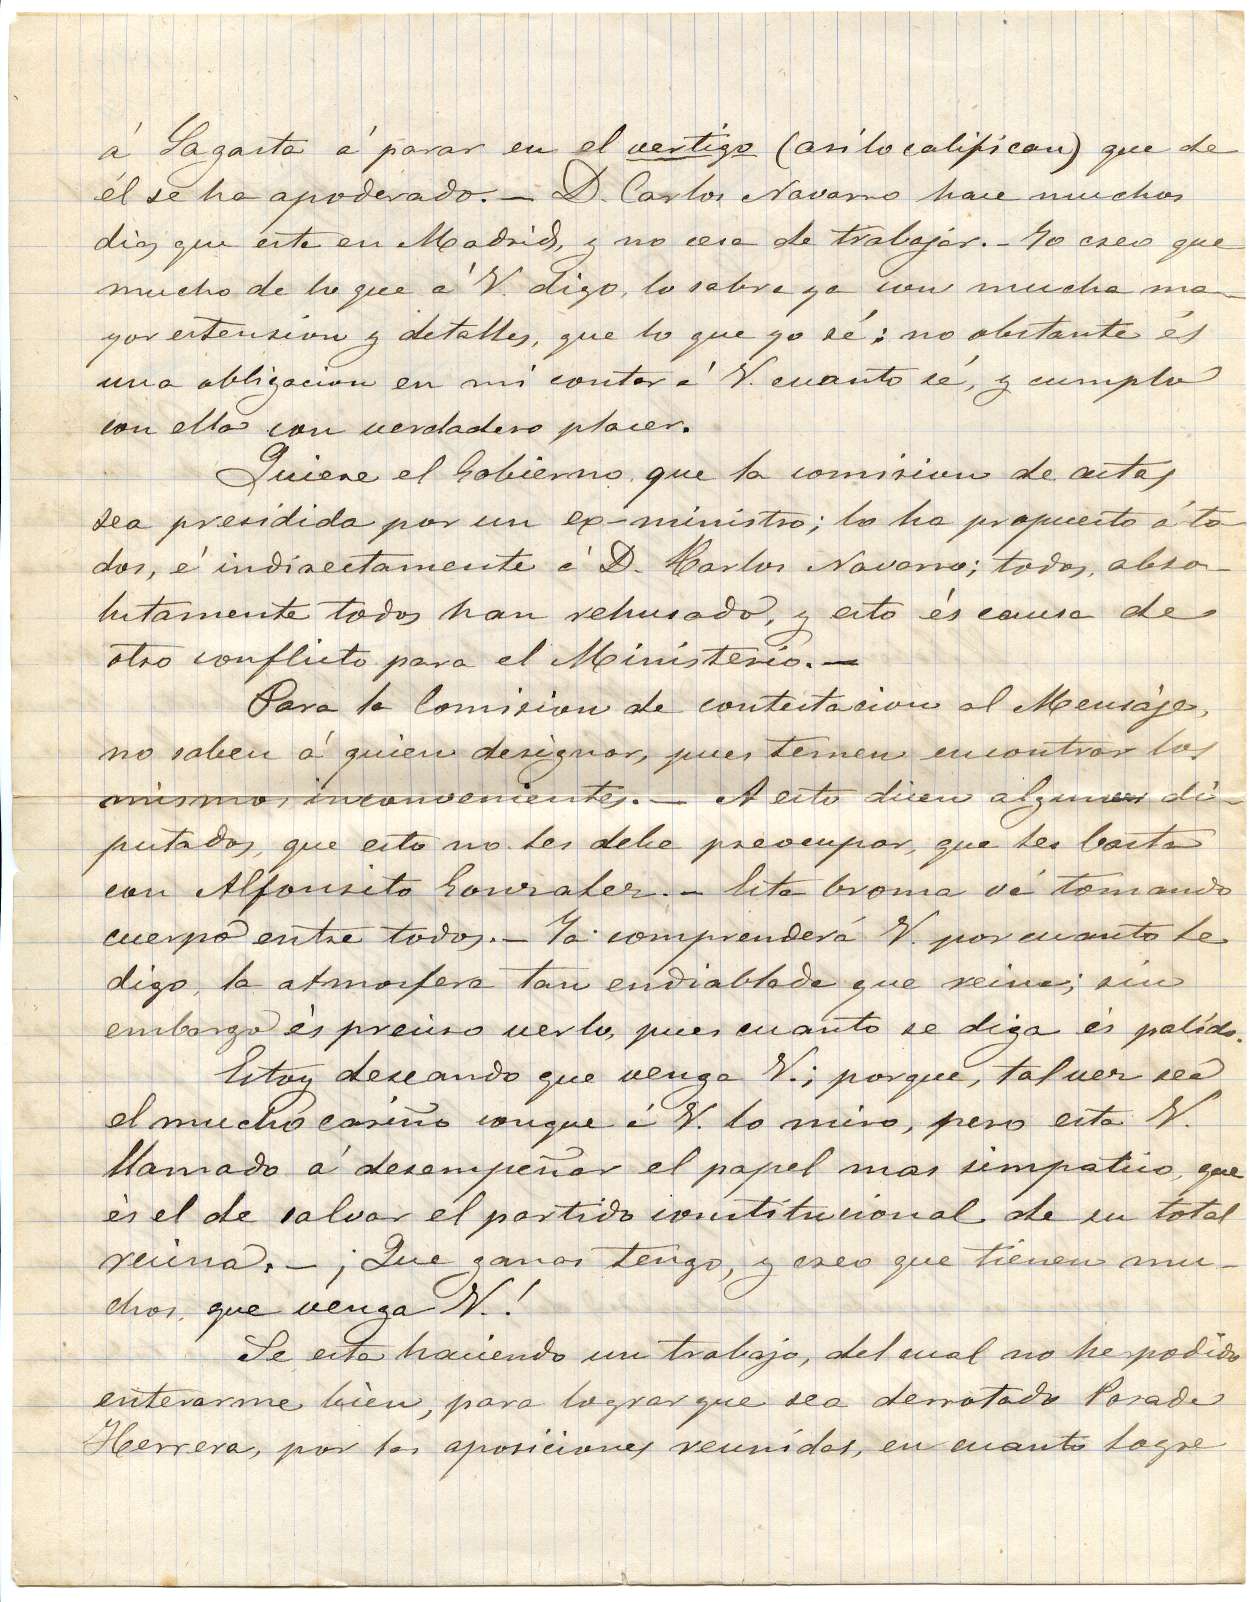 á Sagasta á parar en el vertigo (asi lo califican) que de
él se ha apoderado. — D. Carlos Navarro hace muchos
dias que esta en Madrid, y no cesa de trabajar. — Yo creo que
mucho de lo que á V. digo, lo sabra ya con mucha ma-
yor estension y detalles, que lo que yo sé; no obstante és
una obligacion en mi contar á V. cuanto sé, y cumplo
con ella con verdadero placer.
Quiere el Gobierno que la comision de actas
sea presidida por un ex-ministro; lo ha propuesto á to-
dos, é indirectamente á D. Karlos Navarro; todos, abso-
lutamente todos han rehusado, y esto és causa de
otro conflicto para el Ministerio. —
Para la Comision de contestacion al Mensaje,
no saben á quien designar, pues temen encontrar los
mismos inconvenientes. — A esto dicen algunos di-
putados, que esto no les debe preocupar, que les basta
con Alfonsito Gonzalez. — Esta broma vá tomando
cuerpo entre todos. — Ya comprenderá V. por cuanto le
digo, la atmosfera tan endiablada que reina; sin
embargo és preciso verlo, pues cuanto se diga és palido.
Estoy deseando que venga V.; porque, tal vez sea
el mucho cariño conque á V. lo miro, pero esta V.
llamado á desempeñar el papel mas simpatico, que
és el de salvar el partido constitucional de su total
reuina. — ¡Que ganas tengo, y creo que tienen mu-
chos, que venga V.!
Se esta haciendo un trabajo, del cual no he podido
enterarme bien, para lograr que sea derrotado Posada
Herrera, por las oposiciones reunidas, en cuanto logre